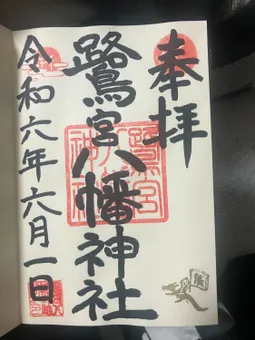 奉拝
鷺宮八幡神社
令和六年六月一日